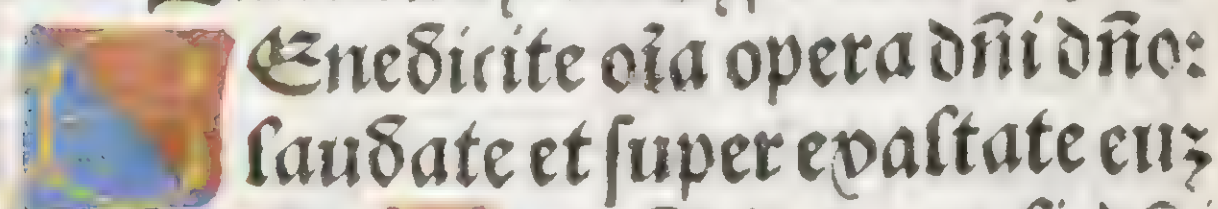 Enedicite oīa opera dn̄i dn̄o:
laudate et super exaltate euꝫ